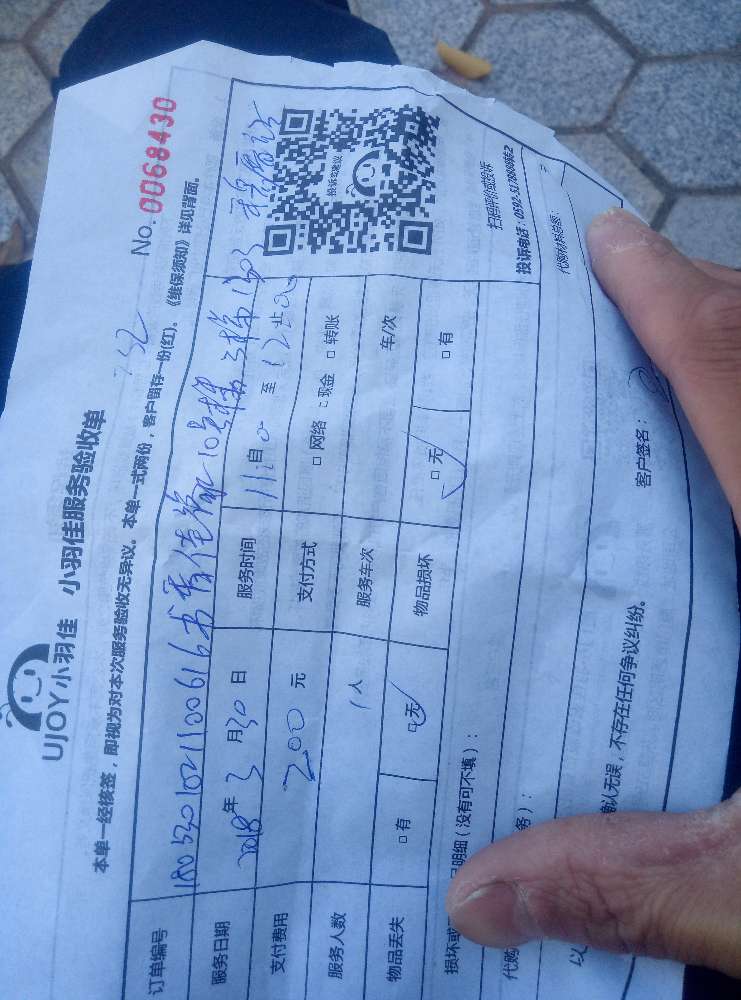 UJOY小羽佳 小羽佳服务验收单
No. 0068430
本单一经核签，即视为对本次服务验收无异议。本单一式两份，客户留存一份(红)。《维保须知》详见背面。
订单编号 1803301021100616 书香佳缘10号楼
服务日期 2018年3月30日 服务时间 自 至
支付费用 200元 支付方式 □网络 □现金 □转账
服务人数 1人 服务车次 车/次
物品丢失 □有 □无 物品损坏 □无 □有
投诉或建议
扫码评价或投诉
投诉电话：0592-5178898转2
损坏或 明细（没有可不填）：
代购 务）： 代购材料总额：
以 确认无误，不存在任何争议纠纷。 客户签名：